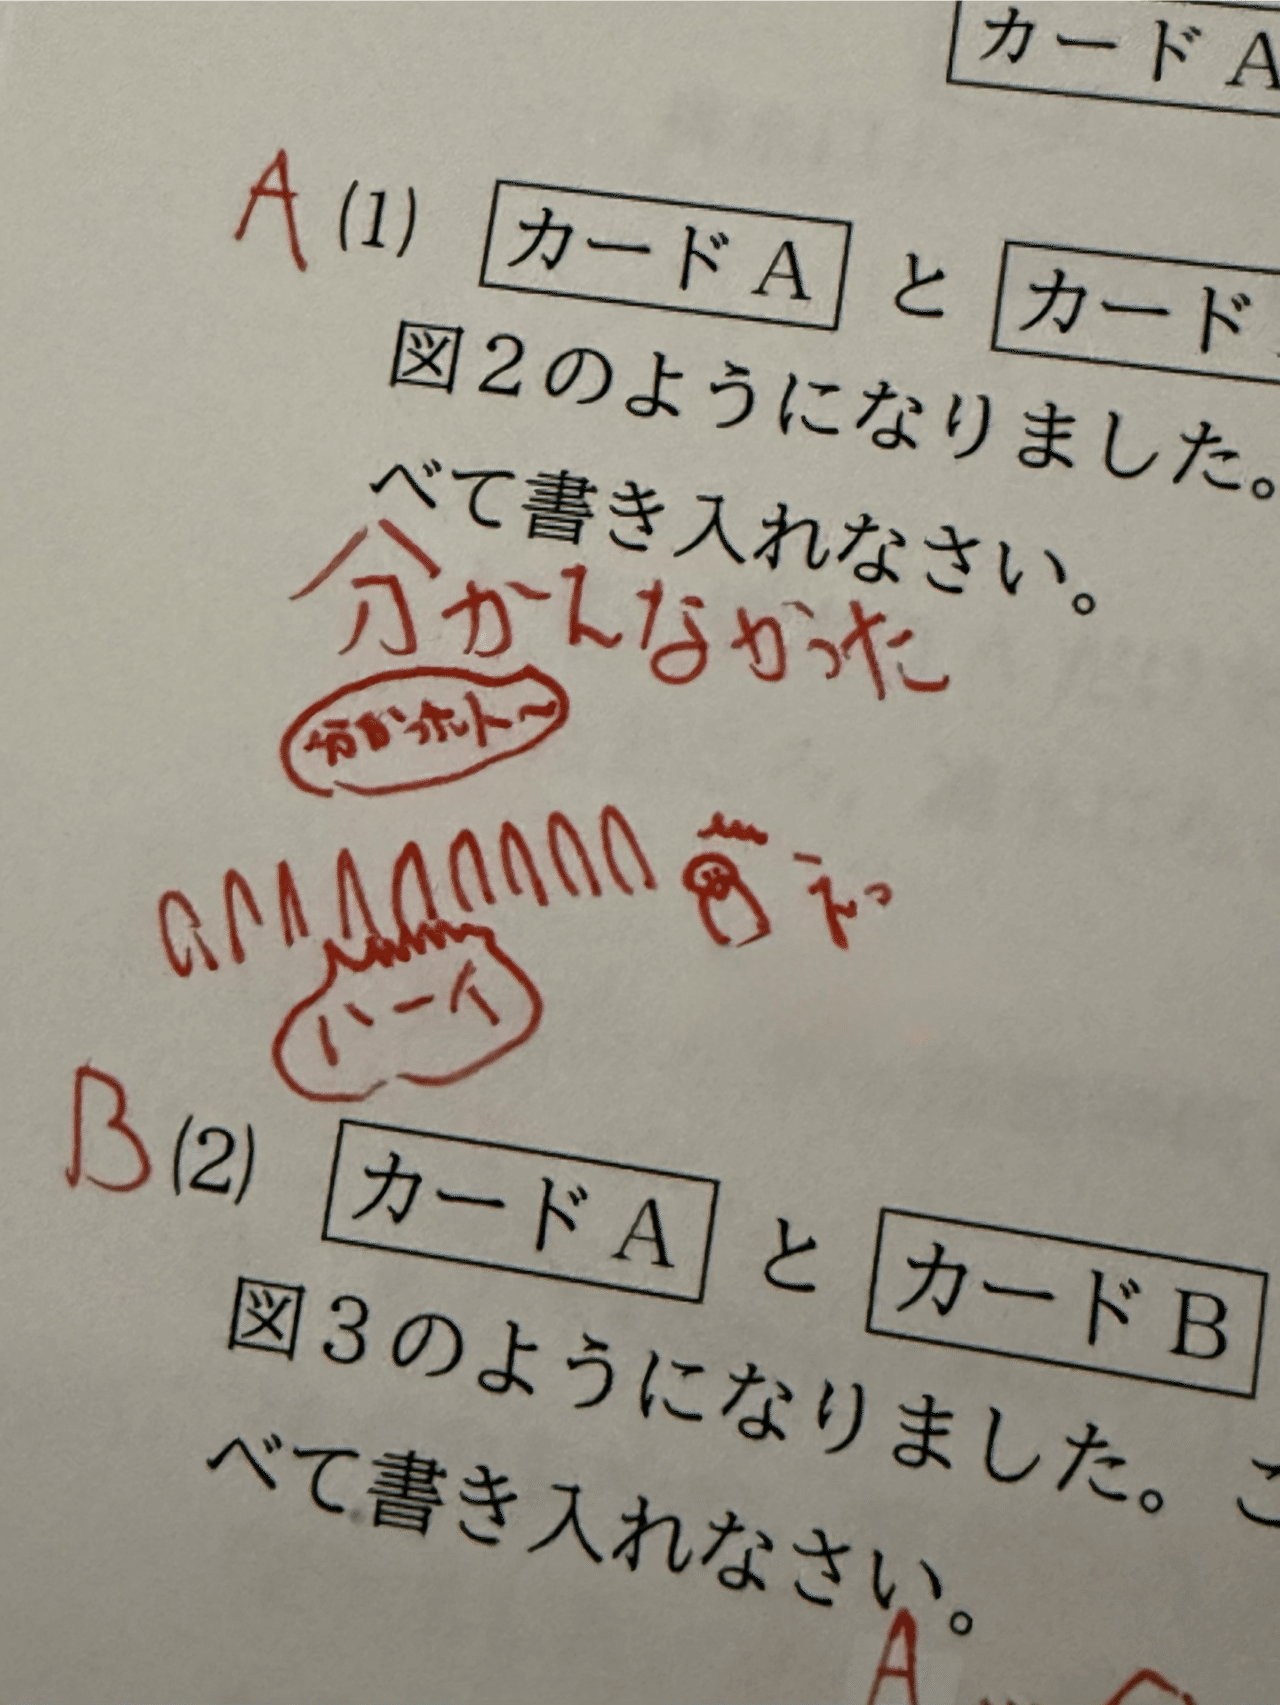 カード A
A (1) カード A と カード
図2のようになりました。
べて書き入れなさい。
分かんなかった
ハーイ
B (2) カード A と カード B
図3のようになりました。こ
べて書き入れなさい。
A